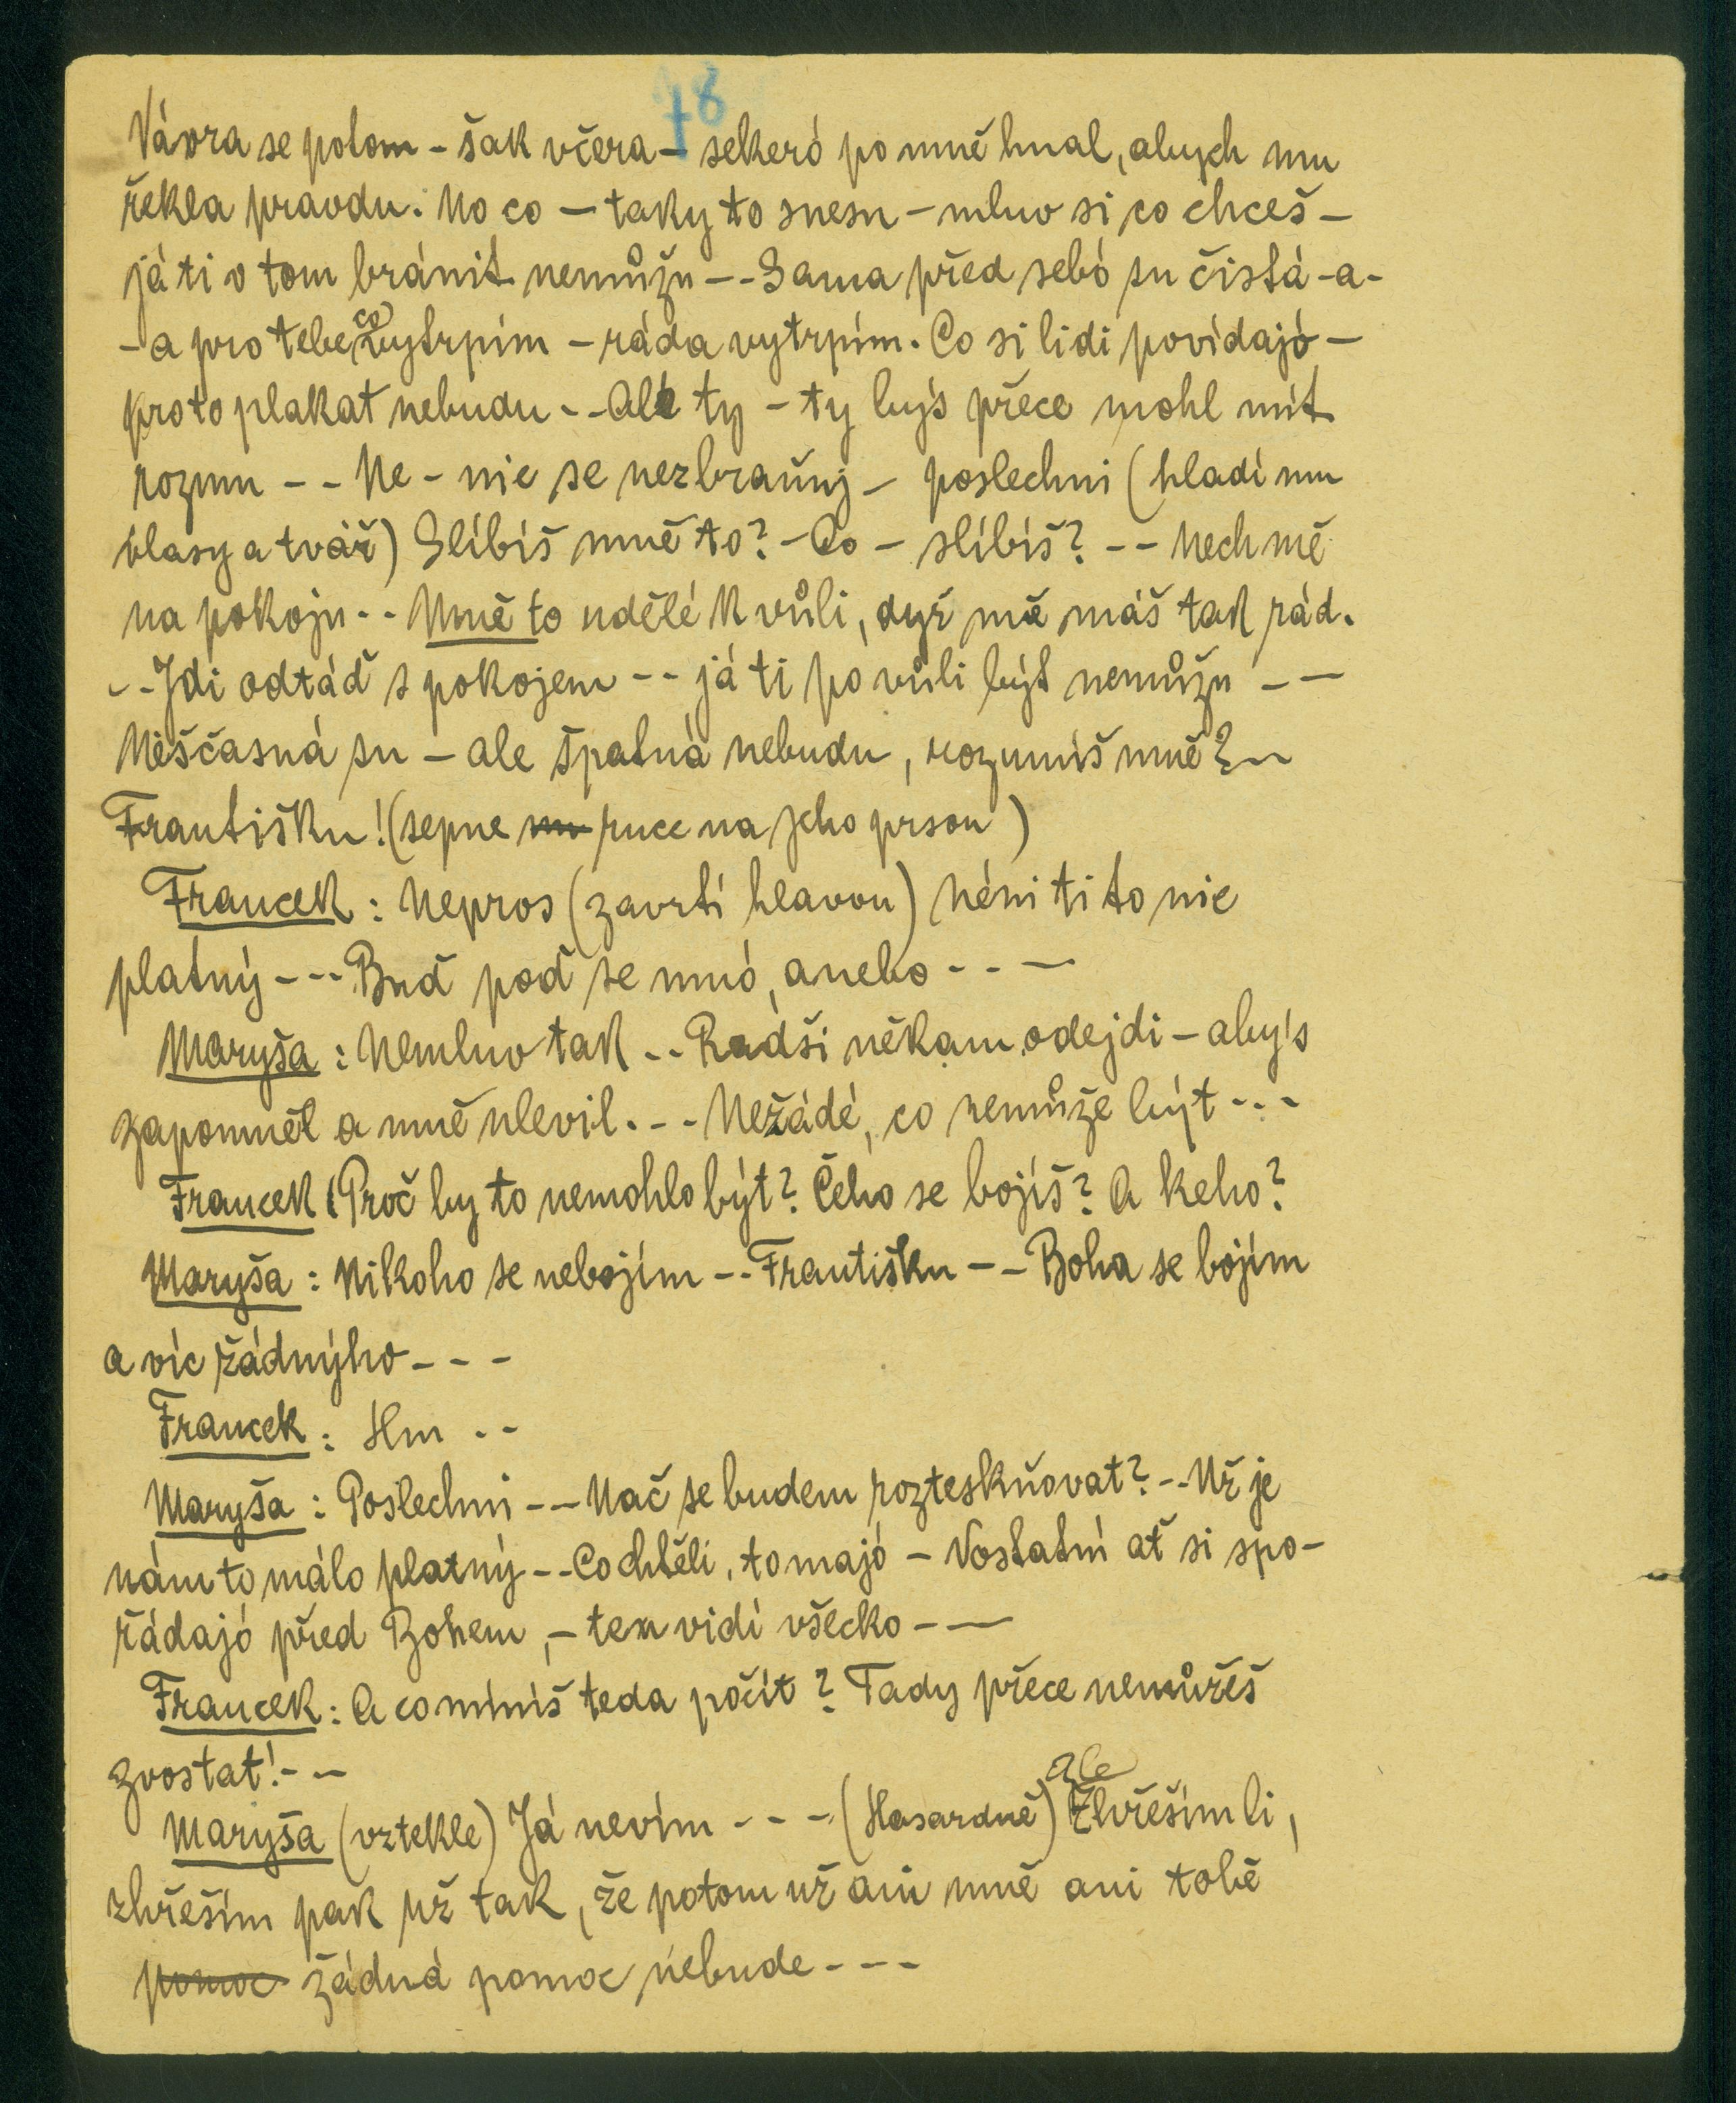 78
Vávra se potom – šak včera – sekeró po mně hnal, abych mu
řekla pravdu. No co – taky to snesu – mluv si co chceš –
já ti v tom bránit nemůžu – - Sama před sebó su čistá -a-
– a pro tebe, co vytrpím – ráda vytrpím. Co si lidi povídajó –
proto plakat nebudu - - Ale ty – ty bys přece mohl mít
rozum - - Ne – nic se nezbraňuj – poslechni (hladí mu
vlasy a tvář) Slíbíš mně to? – Co – slíbíš? - - Nech mě
na pokoju - - Mně to udělé k vůli, dyž mě máš tak rád.
- - Jdi odtáď s pokojem - - já ti po vůli být nemůžu - –
Neščasná su – ale špatná nebudu, rozumíš mně? –
Františku! (sepne mu ruce na jeho prsou)
Francek: Nepros (zavrtí hlavou) néni ti to nic
platný - - - Buď poď se mnó, anebo - - –
Maryša: Nemluv tak - - Radši někam odejdi – aby's
zapomněl a mně ulevil. - - Nežádé, co nemůže být - - -
Francek: Proč by to nemohlo být? Čeho se bojíš? A keho?
Maryša: Nikoho se nebojím - - Františku - – Boha se bojím
a víc žádnýho - - -
Francek: Hm - -
Maryša: Poslechni - – Nač se budem rozteskňovat? - - Už je
nám to málo platný - - Co chtěli, to majó – Vostatní ať si spo-
řádajó před Bohem, – ten vidí všecko - –
Francek: A co míníš teda počít? Tady přece nemůžeš
zvostat! - –
Maryša (vztekle) Já nevím - - - (Hasardně) ale Zhřeším li,
zhřeším pak už tak, že potom už ani mně ani tobě
pomoc žádná pomoc nebude - - -